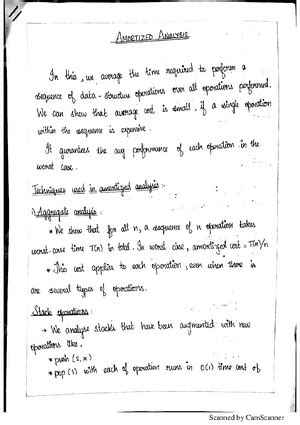 AMORTIZED ANALYSIS
In this, we average the time required to perform a
sequence of data-structure operations over all operations performed.
We can show that average cost is small, if a single operation
within the sequence is expensive.
It gurantees the avg performance of each operation in the
worst case.
Techniques used in amortized analysis :-
1) Aggregate analysis :
* We show that for all n, a sequence of n operation takes
worst-case time T(n) in total. In worst case, amortized cost = T(n)/n
* This cost applies to each operation, even when there is
are several types of operations.
Stack operations :
→ We analyse stacks that have been augmented with new
operations like,
* push (s, x)
* pop (s) with each of operation runs in O(1) time cost of
Scanned by CamScanner